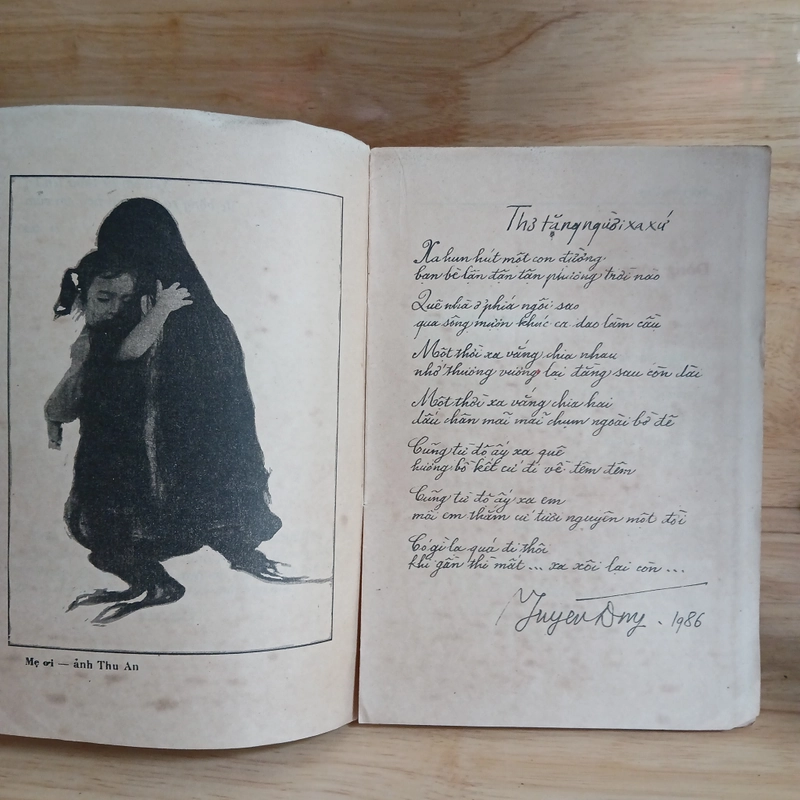 Mẹ ơi — ảnh Thu An
Thơ tặng người xa xứ
Xa hun hút một con đường
bạn bè lận đận tận phương trời nào
Quê nhà ở phía ngôi sao
qua sông mượn khúc ca dao làm cầu
Một thời xa vắng chia nhau
nhớ thương vương lại đằng sau còn dài
Một thời xa vắng chia hai
dấu chân mãi mãi chụm ngoài bờ đê
Cũng từ độ ấy xa quê
hương bồ kết cứ đi về đêm đêm
Cũng từ độ ấy xa em
môi em thắm cứ tươi nguyên một đời
Có gì lạ quá đi thôi
khi gần thì mất ... xa xôi lại còn ...
Nguyễn Duy . 1986